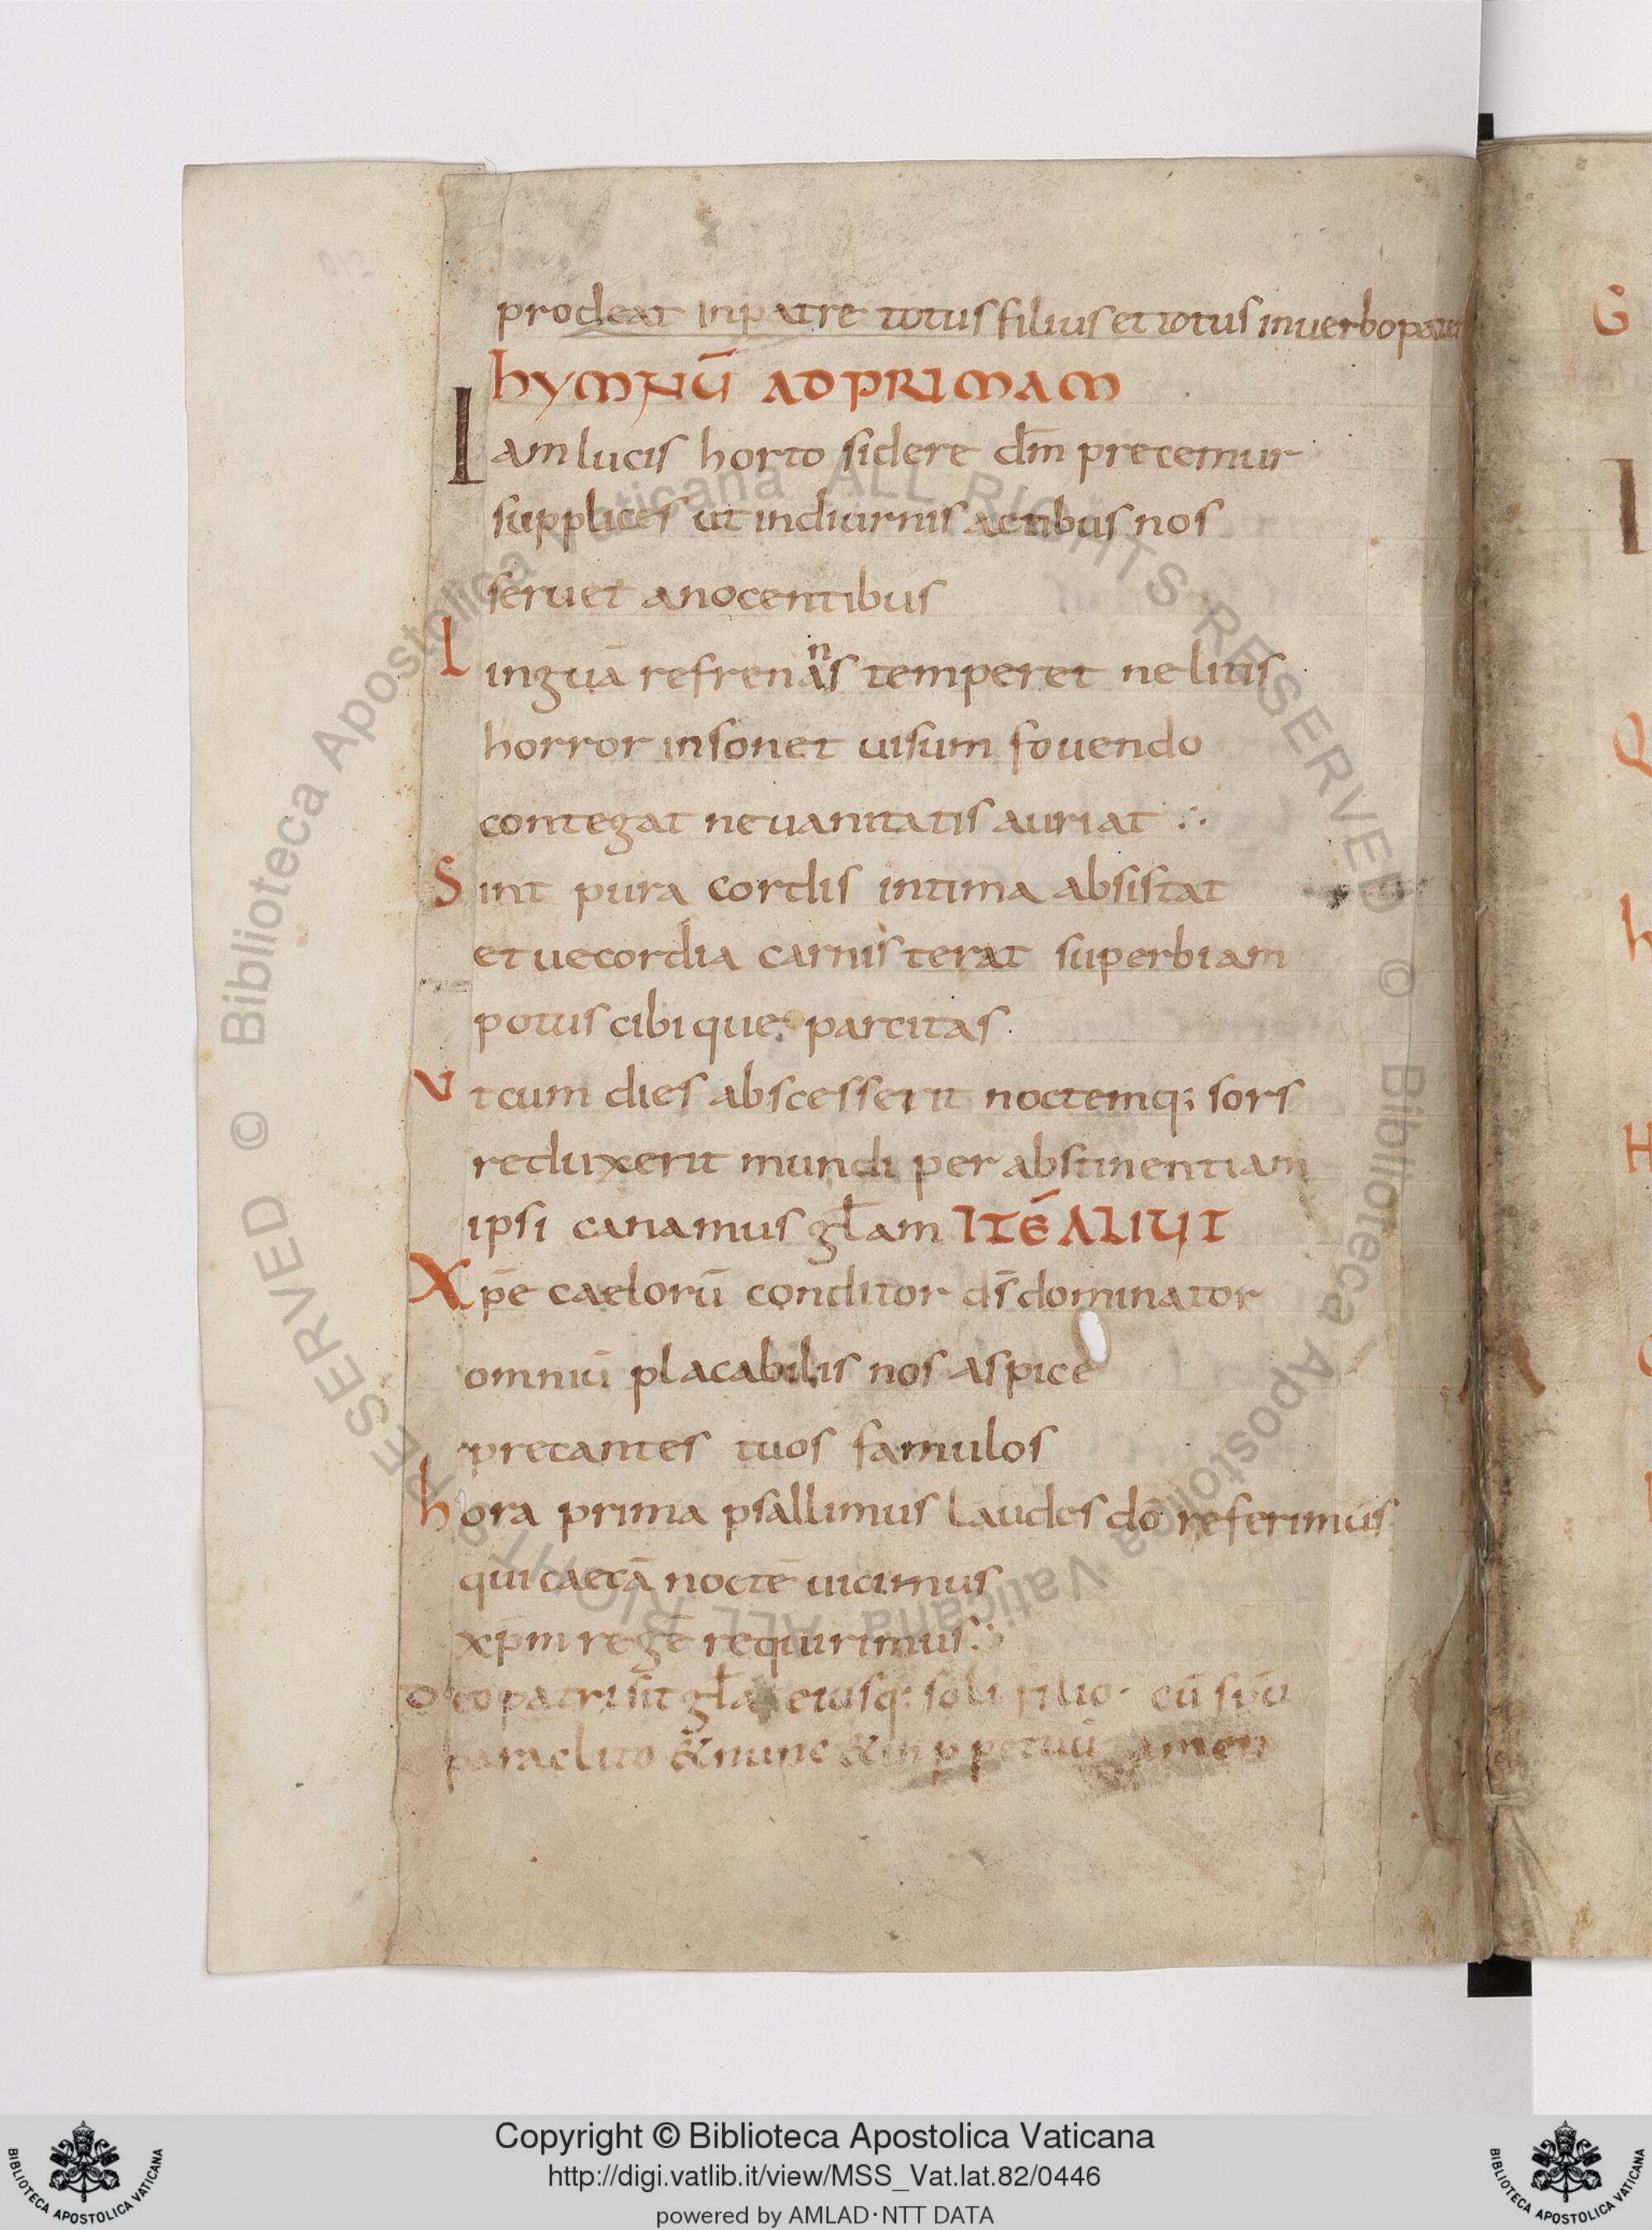 prodeat inpatre totus filius et totus inuerbo pater
hymnū ad primam
Iam lucis horto sidere dm̄ precemur
supplices ut indiurnis actibus nos
seruet anocentibus
Linguā refrenans temperet ne litis
horror insonet uisum fouendo
contegat ne uanitatis auriat ∴
Sint pura cordis intima absistat
et uecordia carnis terat superbiam
potus cibique parcitas.
Vt cum dies abscesserit noctemq; sors
reduxerit mundi per abstinentiam
ipsi canamus gl̄am ITĒ ALIUT
Xp̄e caelorū conditor ds̄ dominator
omniū placabilis nos aspice
precantes tuos famulos
hora prima psallimus laudes dō referimus
qui caecā noctē uicimus
xp̄m regē requirimus.
Deo patri sit gl̄a eiusq; soli filio· cū sp̄ū
paraclito & nunc & in ppetuū amen
Biblioteca Apostolica Vaticana ALL RIGHTS RESERVED ©
Biblioteca Apostolica Vaticana ALL RIGHTS RESERVED ©
G
I
Q
h
H
Copyright © Biblioteca Apostolica Vaticana
http://digi.vatlib.it/view/MSS_Vat.lat.82/0446
powered by AMLAD·NTT DATA
BIBLIOTECA APOSTOLICA VATICANA
BIBLIOTECA APOSTOLICA VATICANA